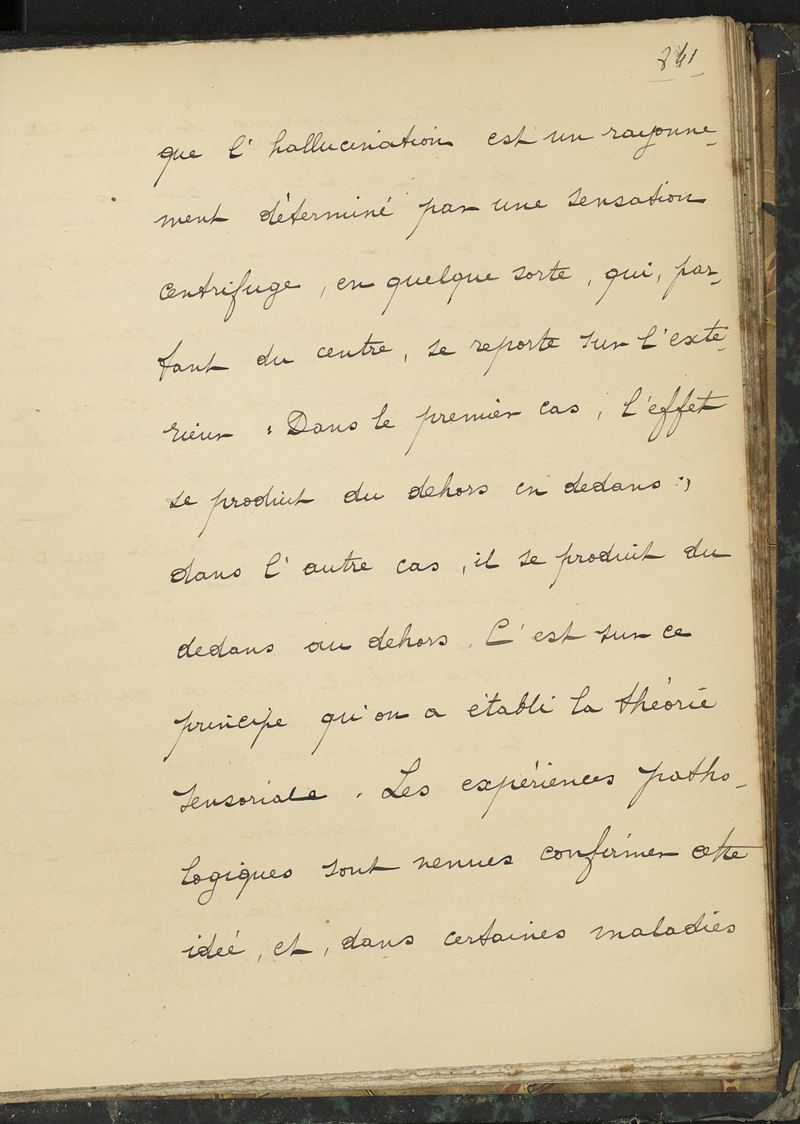 341
que l'hallucination est un rayonne-
ment déterminé par une sensation
centrifuge, en quelque sorte, qui, par-
tant du centre, se reporte sur l'exté-
rieur : Dans le premier cas, l'effet
se produit du dehors en dedans ;
dans l'autre cas, il se produit du
dedans au dehors. C'est sur ce
principe qu'on a établi la théorie
sensoriale. Les expériences patho-
logiques sont venues confirmer cette
ideé, et, dans certaines maladies